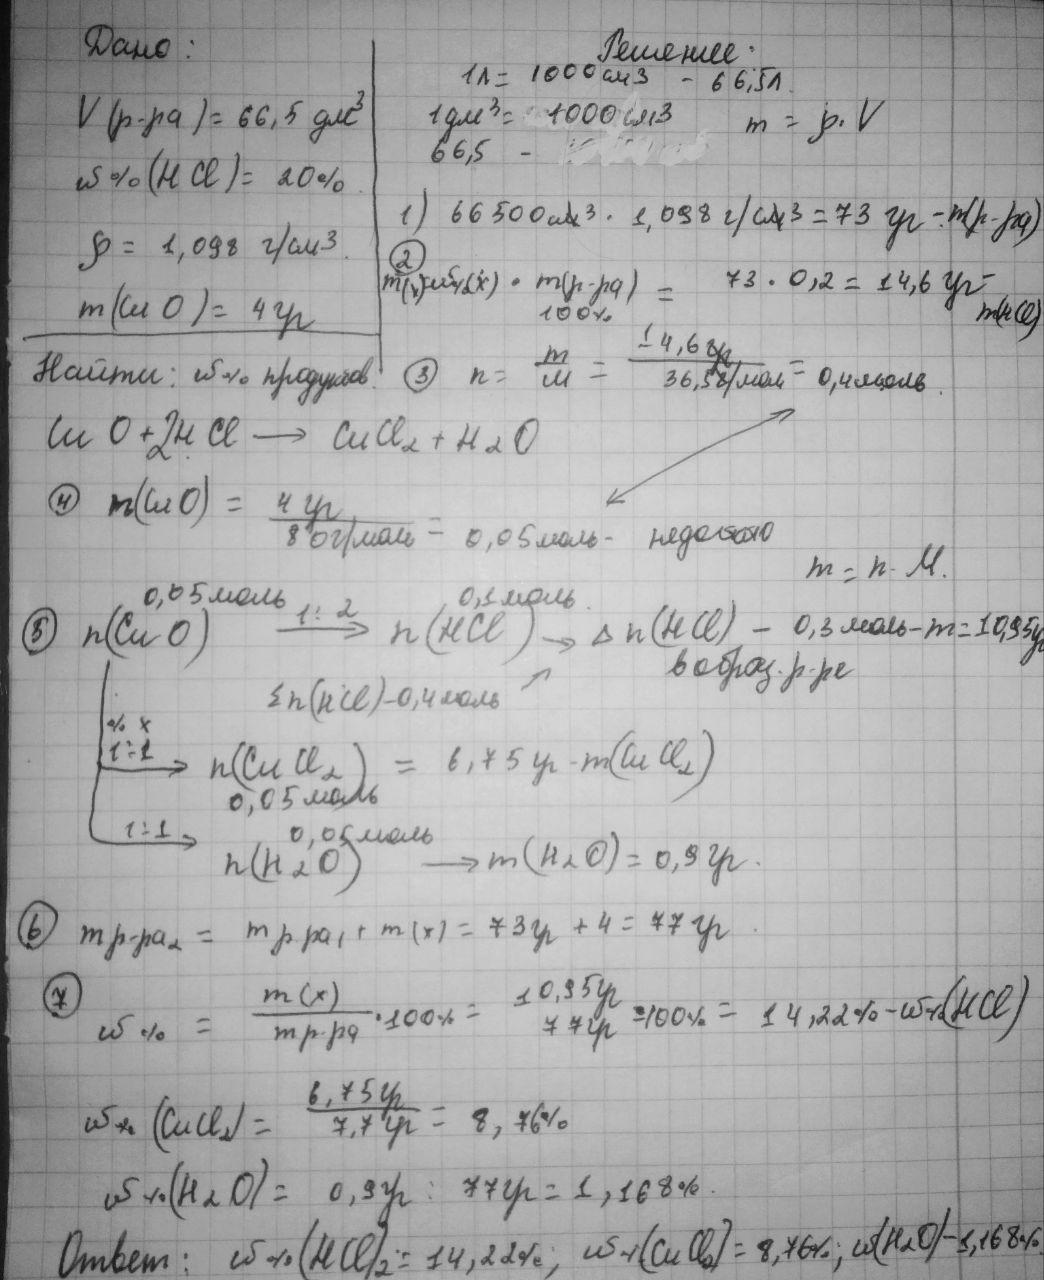 Дано:
V(р-ра) = 66,5 дм³
ω%(HCl) = 20%
ρ = 1,098 г/см3.
m(CuO) = 4гр
Найти: ω% продуктов.
Решение:
1л = 1000см3 - 66,5л
1дм³ = 1000см3 m = ρ·V
66,5 -
1) 66500см3 · 1,098 г/см3 = 73 гр - m(р-ра)
2 m(x) = ω%(x) · m(р-ра) / 100% = 73 · 0,2 = 14,6 гр - m(HCl)
3 n = m / M = 14,6гр / 36,5г/мол = 0,4моль.
CuO + 2HCl → CuCl2 + H2O
4 m(CuO) = 4гр / 80г/моль = 0,05моль -
m = n · M.
0,05моль 0,1моль.
5 n(CuO) 1:2 → n(HCl) → Δ n(HCl) - 0,3моль - m = 10,95гр
в образ. р-ре
Σn(HCl) - 0,4моль
% x
1:1 → n(CuCl2) = 6,75гр - m(CuCl2)
0,05моль
1:1 → 0,05моль
n(H2O) → m(H2O) = 0,9гр.
6 mр-ра2 = mр-ра1 + m(x) = 73гр + 4 = 77гр.
7 ω% = m(x) / mр-ра · 100% = 10,95гр / 77гр · 100% = 14,22% - ω%(HCl)
ω%(CuCl2) = 6,75гр / 7,7гр = 8,76%
ω%(H2O) = 0,9гр : 77гр = 1,168%.
Ответ: ω%(HCl)2 = 14,22%; ω%(CuCl2) = 8,76%; ω(H2O) - 1,168%.